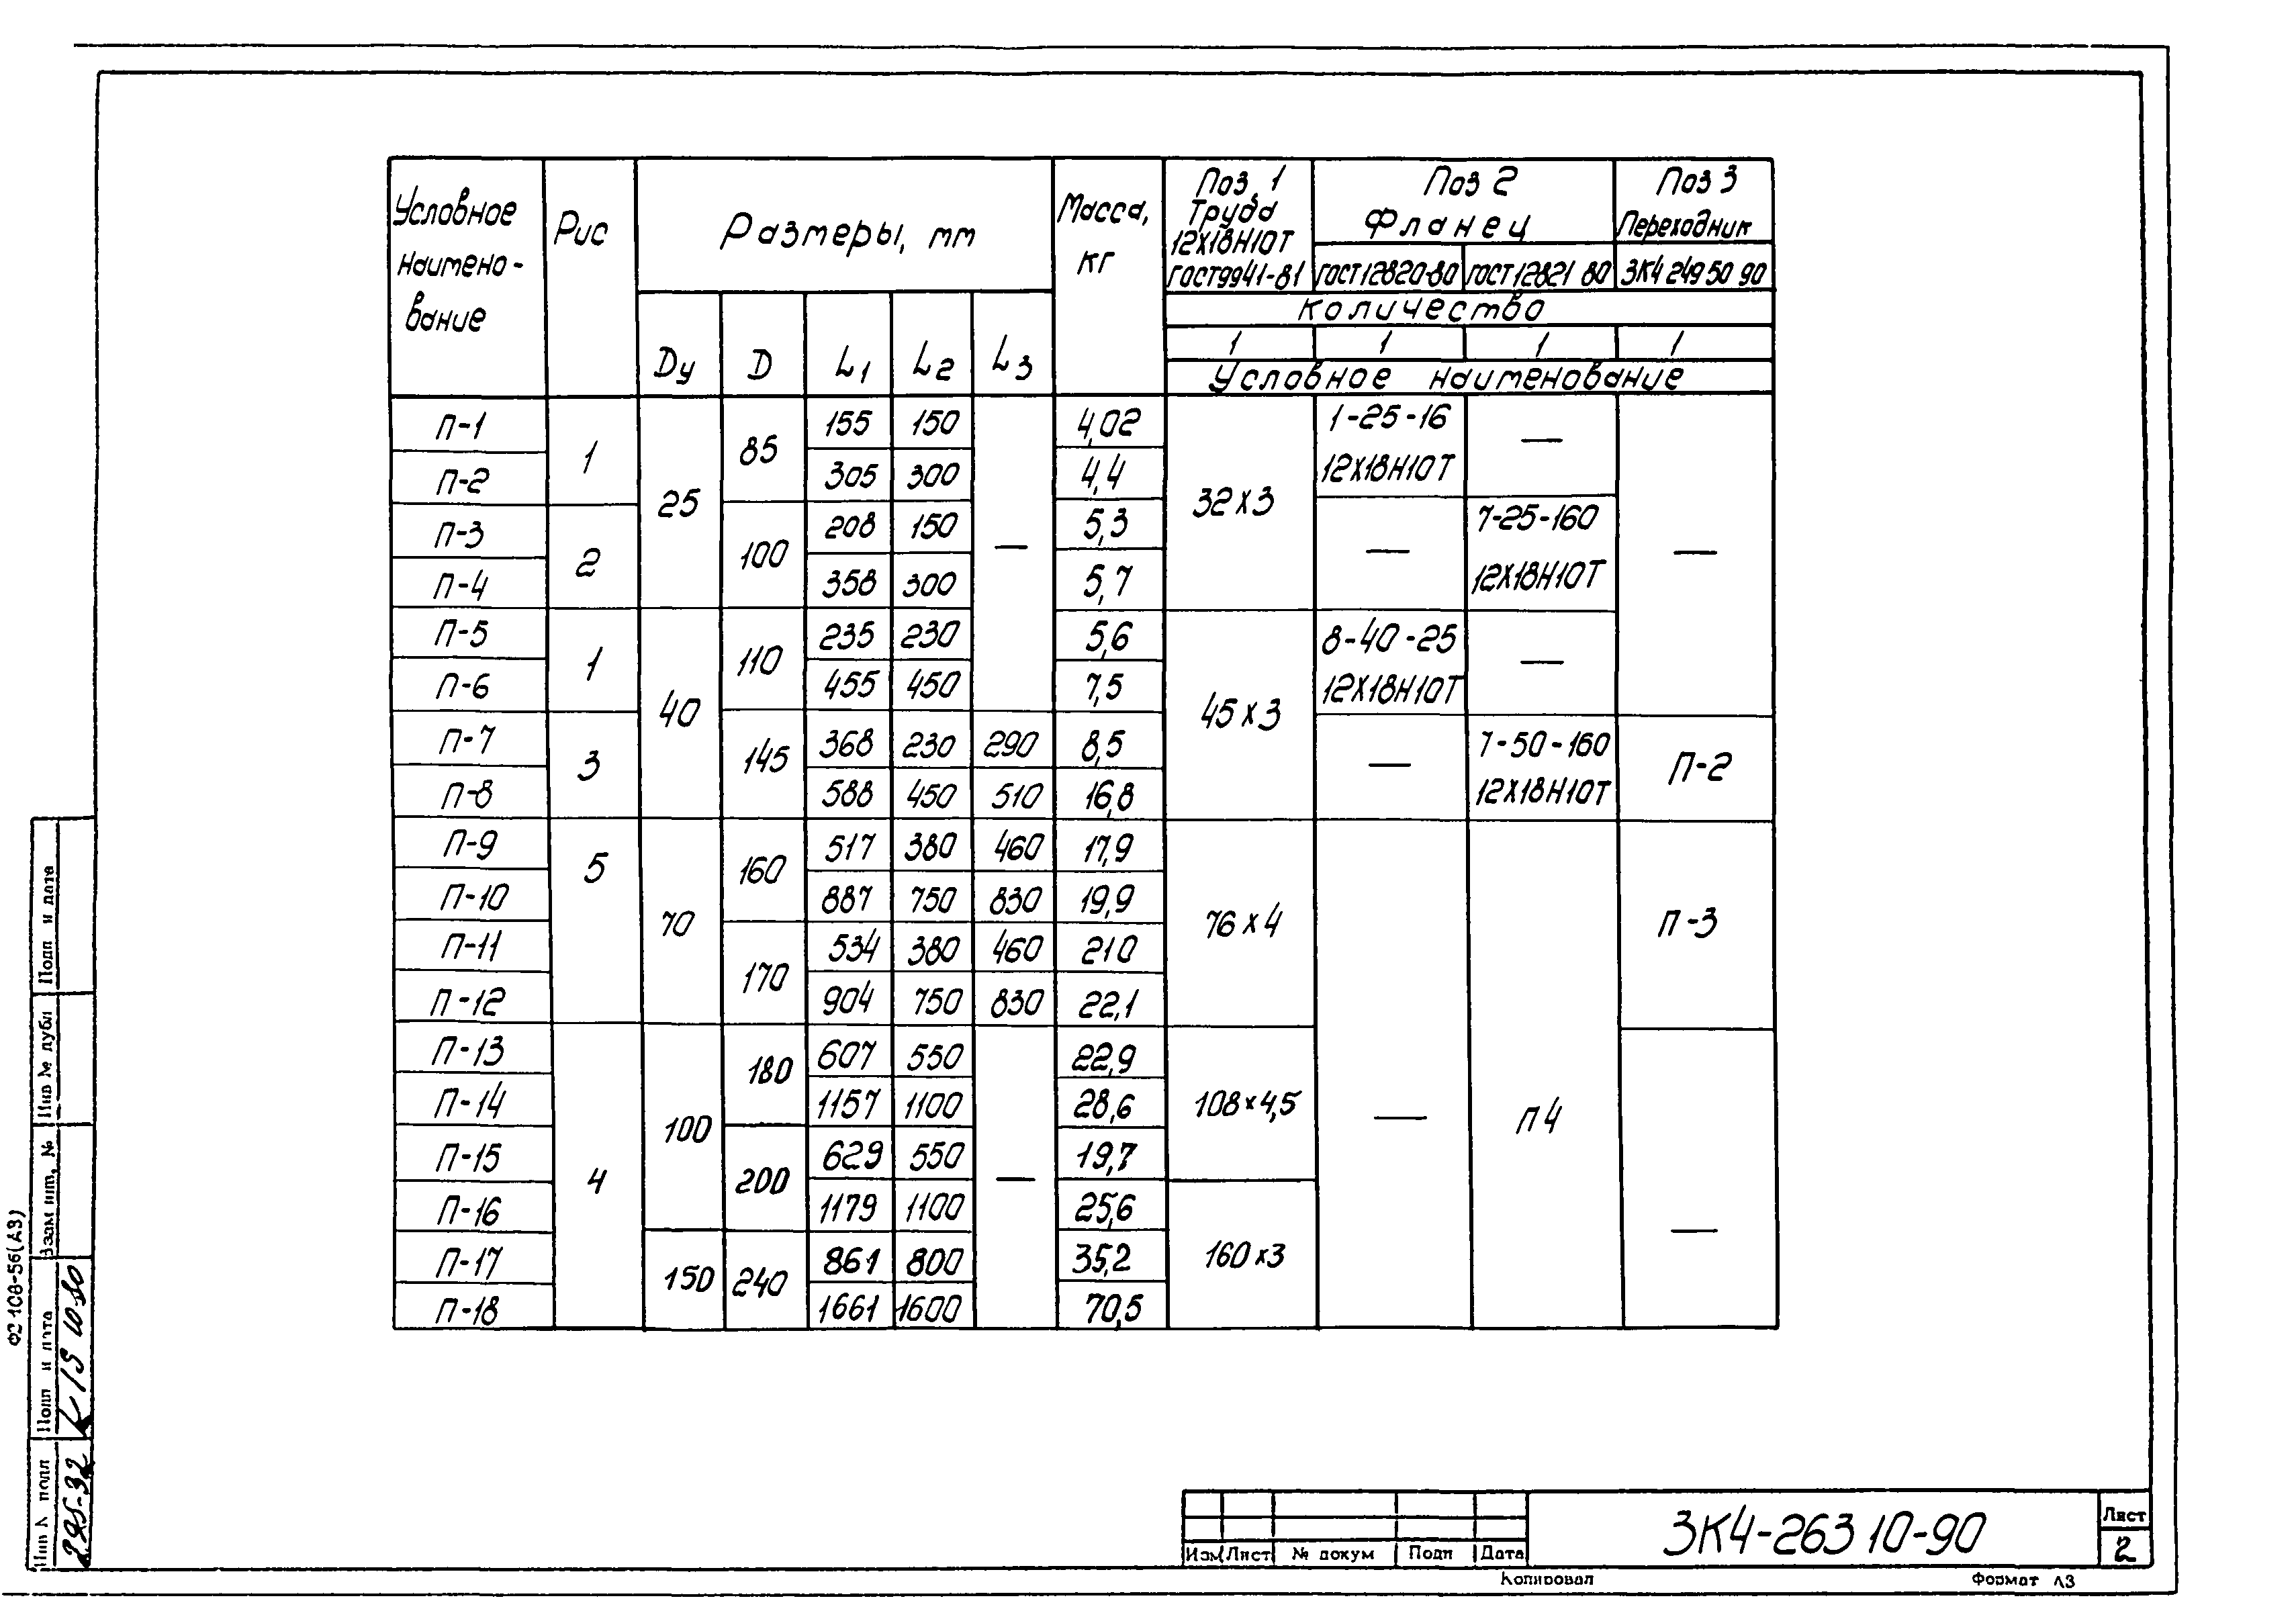 Условное наимено- вание
Рис
Размеры, мм
Масса, кг
Поз. 1 Труба 12Х18Н10Т ГОСТ9941-81
Поз 2 Фланец
ГОСТ12820-80 ГОСТ12821 80
Поз 3 Переходник
ЗК4 249 50 90
Количество
1 1 1 1
Dу D L1 L2 L3
Условное наименование
П-1 1 25 85 155 150 — 4,02 32х3 1-25-16 12Х18Н10Т — —
П-2 305 300 4,4
П-3 2 100 208 150 5,3 — 7-25-160 12Х18Н10Т
П-4 358 300 5,7
П-5 1 40 110 235 230 5,6 45х3 8-40-25 12Х18Н10Т —
П-6 455 450 7,5
П-7 3 145 368 230 290 8,5 — 7-50-160 12Х18Н10Т П-2
П-8 588 450 510 16,8
П-9 5 70 160 517 380 460 17,9 76х4 — П4 П-3
П-10 887 750 830 19,9
П-11 170 534 380 460 210
П-12 904 750 830 22,1
П-13 4 100 180 607 550 — 22,9 108х4,5 —
П-14 1157 1100 28,6
П-15 200 629 550 19,7
П-16 1179 1100 25,6 160х3
П-17 150 240 861 800 35,2
П-18 1661 1600 70,5
Подп и дата
Инв № дубл
Взам инв, №
Подп и дата
Инв № подл
295-32
Ф2 108-5б(А3)
Изм Лист № докум Подп Дата
ЗК4-263 10-90
Лист
2
Копировал
Формат А3